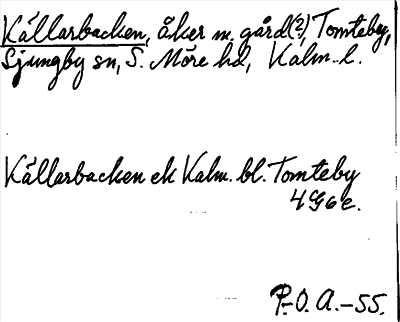 Källarbacken, åker m. gård(?), Tomteby,
Ljungby sn, S. Möre hd, Kalm. l.
Källarbacken ek Kalm. bl. Tomteby
4G6e.
P.O.A.-55.